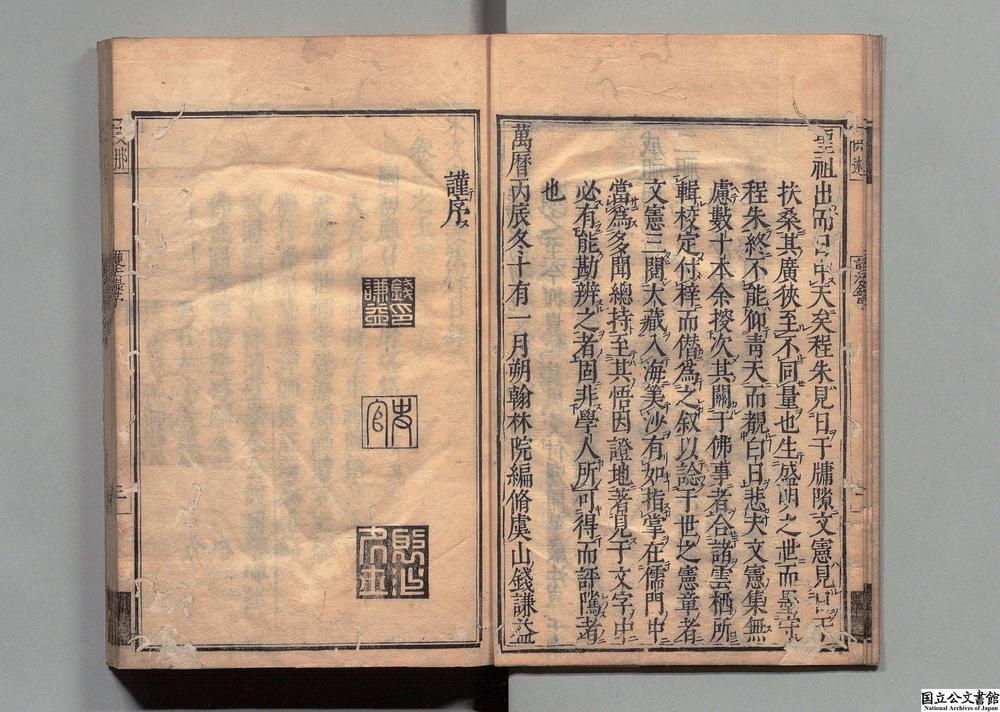 聖祖出而日中天矣程朱見日于牖隙文憲見日于
扶桑其廣狹至不同量也生盛明之世而墨守
程朱終不能仰青天而覩白日悲夫文憲集無
慮數十本余授次其關于佛事者合諸雲栖所
輯校定付梓而僣爲之叙以諗于世之憲章者
文憲三閱大藏入海筭沙有如指掌在儒門中
當爲多聞總持至其悟因證地著見于文字中
必有能勘辨之者固非學人所可得而評隲者
也
萬曆丙辰冬十有一月朔翰林院編脩虞山錢謙益
謹序
錢謙益印
史官
国立公文書館
National Archives of Japan